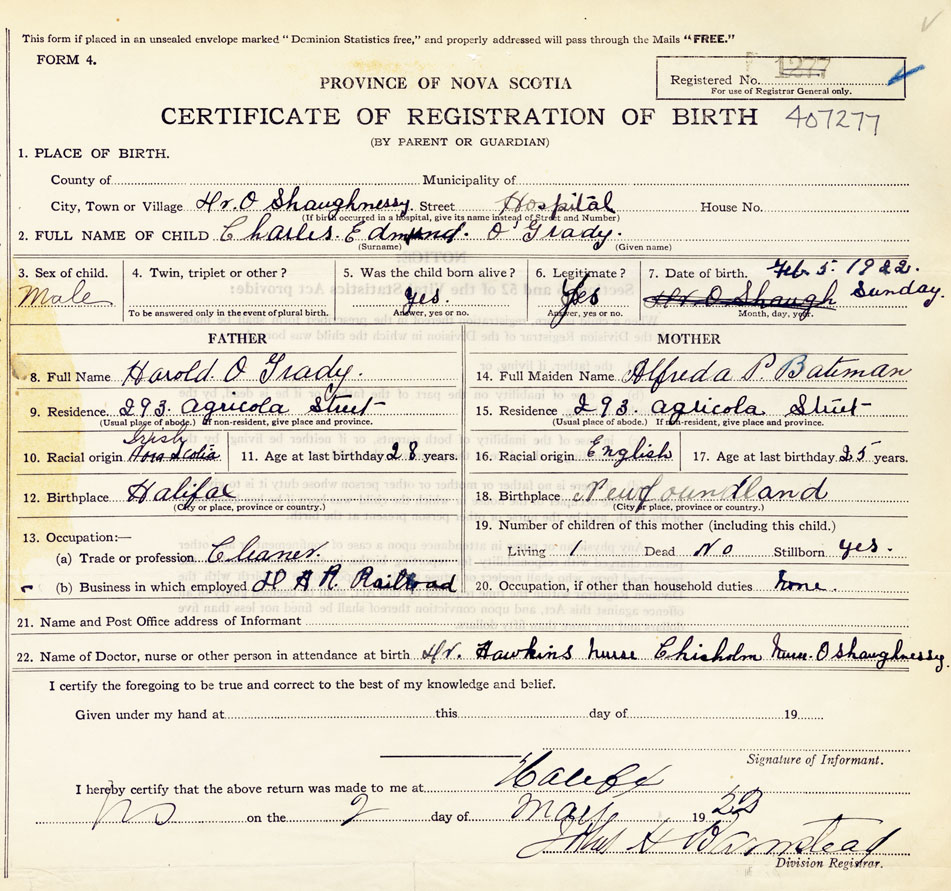 This form if placed in an unsealed envelope marked "Dominion Statistics free," and properly addressed will pass through the Mails "FREE."
FORM 4.
PROVINCE OF NOVA SCOTIA
Registered No. 1277
For use of Registrar General only.
CERTIFICATE OF REGISTRATION OF BIRTH 407277
(BY PARENT OR GUARDIAN)
1. PLACE OF BIRTH.
County of Municipality of
City, Town or Village Hr. O Shaughnessy. Street Hospital House No.
(If birth occurred in a hospital, give its name instead of Street and Number)
2. FULL NAME OF CHILD Charles. Edmund. O'Grady.
(Surname) (Given name)
3. Sex of child. 4. Twin, triplet or other? 5. Was the child born alive? 6. Legitimate? 7. Date of birth. Feb. 5. 1922.
Male yes. Yes Hr. O Shaugh Sunday.
To be answered only in the event of plural birth. Answer, yes or no. Answer, yes or no. Month, day, year.
FATHER MOTHER
8. Full Name Harold O Grady. 14. Full Maiden Name Alfreda P. Bateman
9. Residence. 293. Agricola Street 15. Residence 293. Agricola Street
(Usual place of abode.) If non-resident, give place and province. (Usual place of abode.) If non-resident, give place and province.
Irish
10. Racial origin Nova Scotia 11. Age at last birthday 28 years. 16. Racial origin English 17. Age at last birthday 25 years.
12. Birthplace Halifax 18. Birthplace Newfoundland
(City or place, province or country.) (City or place, province or country.)
13. Occupation:— 19. Number of children of this mother (including this child.)
(a) Trade or profession Cleaner. Living 1 Dead No Stillborn yes.
(b) Business in which employed H & R. Railroad 20. Occupation, if other than household duties None.
21. Name and Post Office address of Informant
22. Name of Doctor, nurse or other person in attendance at birth Hr. Hawkins Nurse Chisholm Nurse. O Shaughnessy.
I certify the foregoing to be true and correct to the best of my knowledge and belief.
Given under my hand at this day of 19
Signature of Informant.
I hereby certify that the above return was made to me at Halifax
NS on the 2 day of May 1922
H Barnstead
Division Registrar.